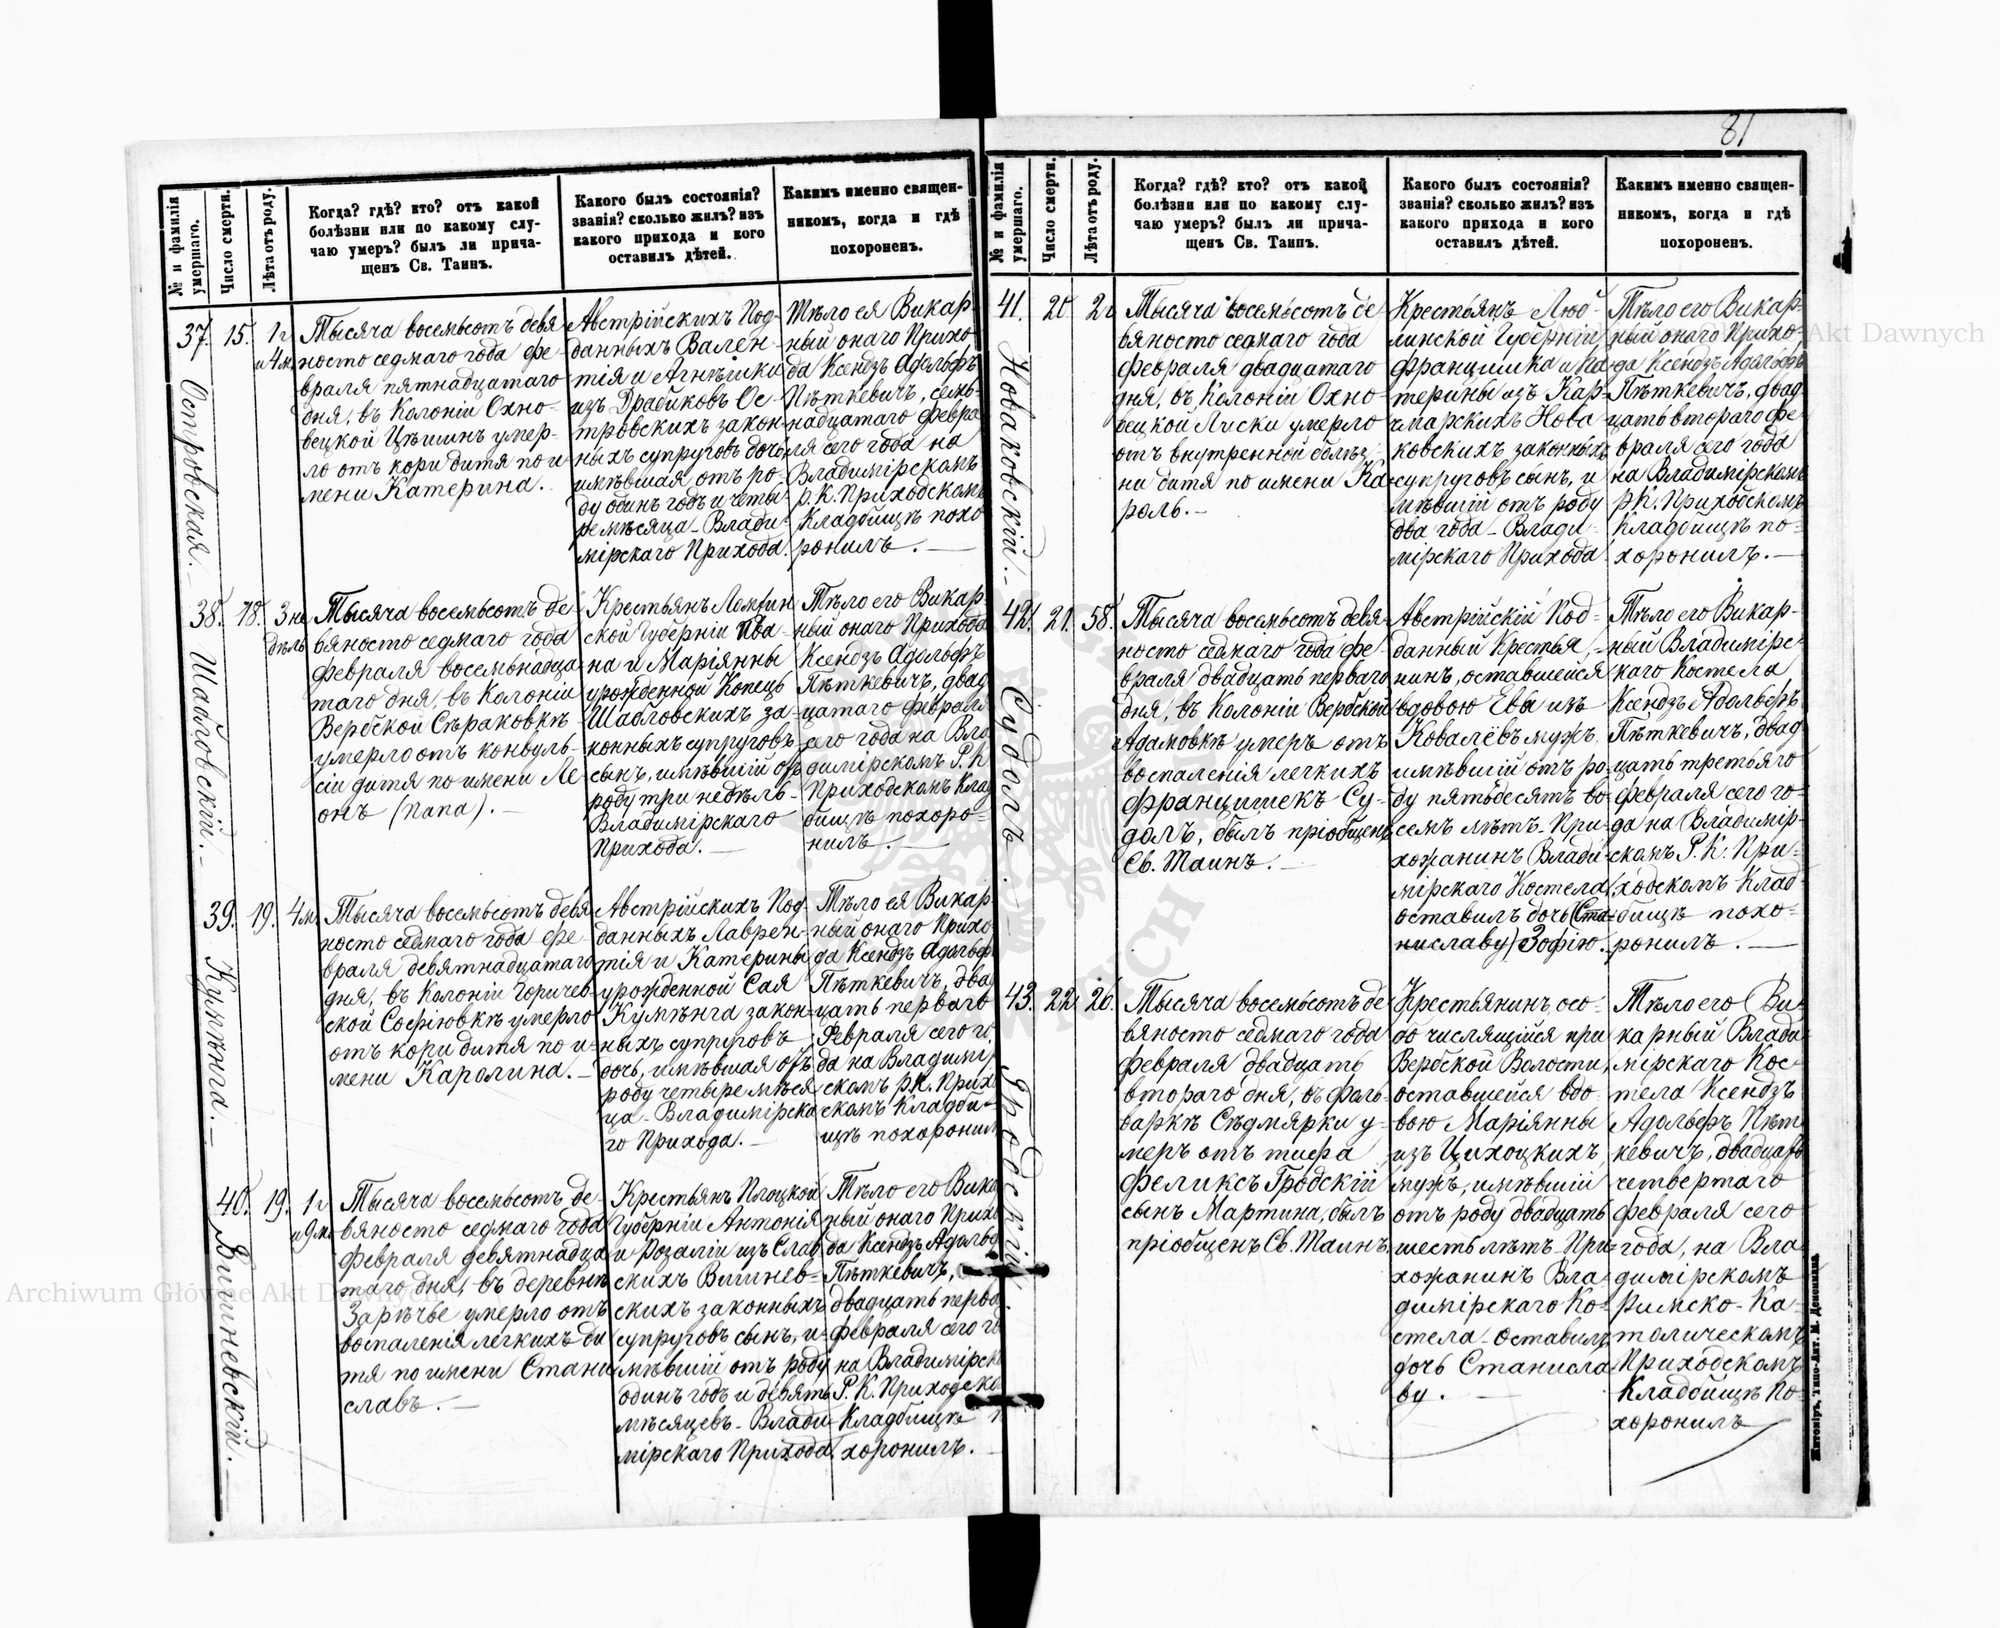 81
№ и фамилія умершаго.
Число смерти.
Лѣта отъ роду.
Когда? гдѣ? кто? отъ какой
болѣзни или по какому слу-
чаю умеръ? былъ ли прича-
щенъ Св. Таинъ.
Какого былъ состоянія?
званія? сколько жилъ? изъ
какого прихода и кого
оставилъ дѣтей.
Какимъ именно священ-
никомъ, когда и гдѣ
похороненъ.
37.
Островская.
15.
1 г
и 4 м.
Тысяча восемьсотъ девя
носто седмаго года фе-
враля пятнадцатаго
дня, въ Колоніи Охно-
вецкой Цѣшинъ умер-
ло отъ кори дитя по и-
мени Катерина.
Австрійскихъ Под-
данныхъ Вален-
тія и Агнѣшки
изъ Драбиковъ Ос-
тровскихъ закон-
ныхъ супруговъ дочь
имѣвшая отъ ро-
ду одинъ годъ и четы-
ре мѣсяца - Влади-
мірскаго Прихода.
Тѣло ея Викар-
ный онаго Прихо
да Ксендзъ Адольфъ
Пѣткевичъ, семь-
надцатаго февра-
ля сего года на
Владимірскомъ
р. К. Приходскомъ
Кладбищѣ похо
ронилъ. —
38.
Шабловскій. —
18.
3 не
дѣль
Тысяча восемьсотъ де-
вяносто седмаго года
февраля восемьнадца
таго дня, въ Колоніи
Вербской Сѣраковкѣ
умерло отъ конвуль-
сіи дитя по имени Ле
онъ (папа). —
Крестьянъ Ломжин
ской Губерніи Ива-
на и Маріянны
урожденной Конецъ
Шабловскихъ за-
конныхъ супруговъ
сынъ, имѣвшій отъ
роду три недѣль-
Владимірскаго
Прихода. —
Тѣло его Викар-
ный онаго Прихода
Ксендзъ Адольфъ
Пѣткевичъ, двад
цатаго февраля
сего года на Вла
димірскомъ Р. К
Приходскомъ Клад
бищѣ похоро-
нилъ. —
39.
Кумпѣнга. —
19.
4 м.
Тысяча восемьсотъ девя
носто седмаго года фе-
враля девятнадцатаго
дня, въ Колоніи Горичев-
ской Софіювкѣ умерло
отъ кори дитя по и-
мени Каролина. —
Австрійскихъ Под
данныхъ Лаврен-
тія и Катерины
урожденной Сая
Кумпѣнга закон-
ныхъ супруговъ
дочь, имѣвшая отъ
роду четыре мѣся
ца - Владимірска
го Прихода. —
Тѣло ея Викар
ный онаго Прихо
да Ксендзъ Адольфъ
Пѣткевичъ, два
цать перваго
Февраля сего го
да на Владимі
скомъ р. К. Прихо
скомъ Кладби-
щѣ похоронил
40.
Вишневскій. —
19.
1 г
и 9 м.
Тысяча восемьсотъ де-
вяносто седмаго года
февраля девятнадца
таго дня, въ деревнѣ
Зарѣчье умерло отъ
воспаленія легкихъ ди
тя по имени Стани
славъ. —
Крестьянъ Плоцкой
Губерніи Антонія
и Розаліи изъ Слав
скихъ Вишнев-
скихъ законныхъ
супруговъ сынъ, и-
мѣвшій отъ роду
одинъ годъ и девять
мѣсяцевъ - Влади
мірскаго Прихода.
Тѣло его Вика
ный онаго Прихо
да Ксендзъ Адольф
Пѣткевичъ,
двадцать перва
февраля сего го
на Владимірск
Р. К. Приходско
Кладбищѣ п
хоронилъ.
№ и фамилія умершаго.
Число смерти.
Лѣта отъ роду.
Когда? гдѣ? кто? отъ какой
болѣзни или по какому слу-
чаю умеръ? былъ ли прича-
щенъ Св. Таинъ.
Какого былъ состоянія?
званія? сколько жилъ? изъ
какого прихода и кого
оставилъ дѣтей.
Какимъ именно священ-
никомъ, когда и гдѣ
похороненъ.
41.
Новаковскій. —
20
2 г
Тысяча восемьсотъ де-
вяносто седмаго года
февраля двадцатаго
дня, въ Колоніи Охно-
вецкой Лиски умерло
отъ внутренной болѣз-
ни дитя по имени Ка-
роль. —
Крестьянъ Люб-
линской Губерніи
Францишка и Ка
терины изъ Кар-
чмарскихъ Нова
ковскихъ законныхъ
супруговъ сынъ, и
мѣвшій отъ роду
два года - Влади-
мірскаго Прихода
Тѣло его Викар-
ный онаго Прихо-
да Ксендзъ Адольфъ
Пѣткевичъ, двад
цать втораго фе-
враля сего года
на Владимірскомъ
р. К. Приходскомъ
Кладбищѣ по-
хоронилъ. —
42.
Судолъ.
21.
58.
Тысяча восемьсотъ девя-
носто седмаго года фе-
враля двадцать перваго
дня, въ Колоніи Вербской
Адамовкѣ умеръ отъ
воспаленія легкихъ
Францишекъ Су-
долъ, былъ пріобщенъ
Св. Таинъ. —
Австрійскій Под-
данный Крестья-
нинъ, оставшейся
вдовою Евы изъ
Ковалёвъ мужъ,
имѣвшій отъ ро-
ду пятьдесятъ во-
семь лѣтъ - При-
хожанинъ Влади-
мірскаго Костела
оставилъ дочь (Ста-
ниславу) Зофію.
Тѣло его Викар-
ный Владимірс-
каго Костела
Ксендзъ Адольфъ
Пѣткевичъ, двад
цать третьяго
февраля сего го-
да на Владимір-
скомъ Р. К. При-
ходскомъ Клад
бищѣ похо-
ронилъ. —
43.
Гродскій.
22.
26.
Тысяча восемьсотъ де
вяносто седмаго года
февраля двадцать
втораго дня, въ фоль
варкѣ Сѣдмярки у-
меръ отъ тифа
Феликсъ Гродскій
сынъ Мартина, былъ
пріобщенъ Св. Таинъ.
Крестьянинъ, осо-
бо числящійся при
Вербской Волости,
оставшейся вдо-
вою Маріянны
изъ Цихоцкихъ,
мужъ, имѣвшій
отъ роду двадцать
шесть лѣтъ - При-
хожанинъ Вла-
димірскаго Ко-
стела - оставилъ
дочь Станисла
ву. —
Тѣло его Ви-
карный Влади-
мірскаго Кос-
тела Ксендзъ
Адольфъ Пѣт
кевичъ, двадцать
четвертаго
февраля сего
года, на Вла
димірскомъ
Римско-Ка-
толическомъ
Приходскомъ
Кладбищѣ по-
хоронилъ
Житоміръ, Типо-Лит. М. Дененмана
Archiwum Główne Akt Dawnych
Archiwum Główne Akt Dawnych